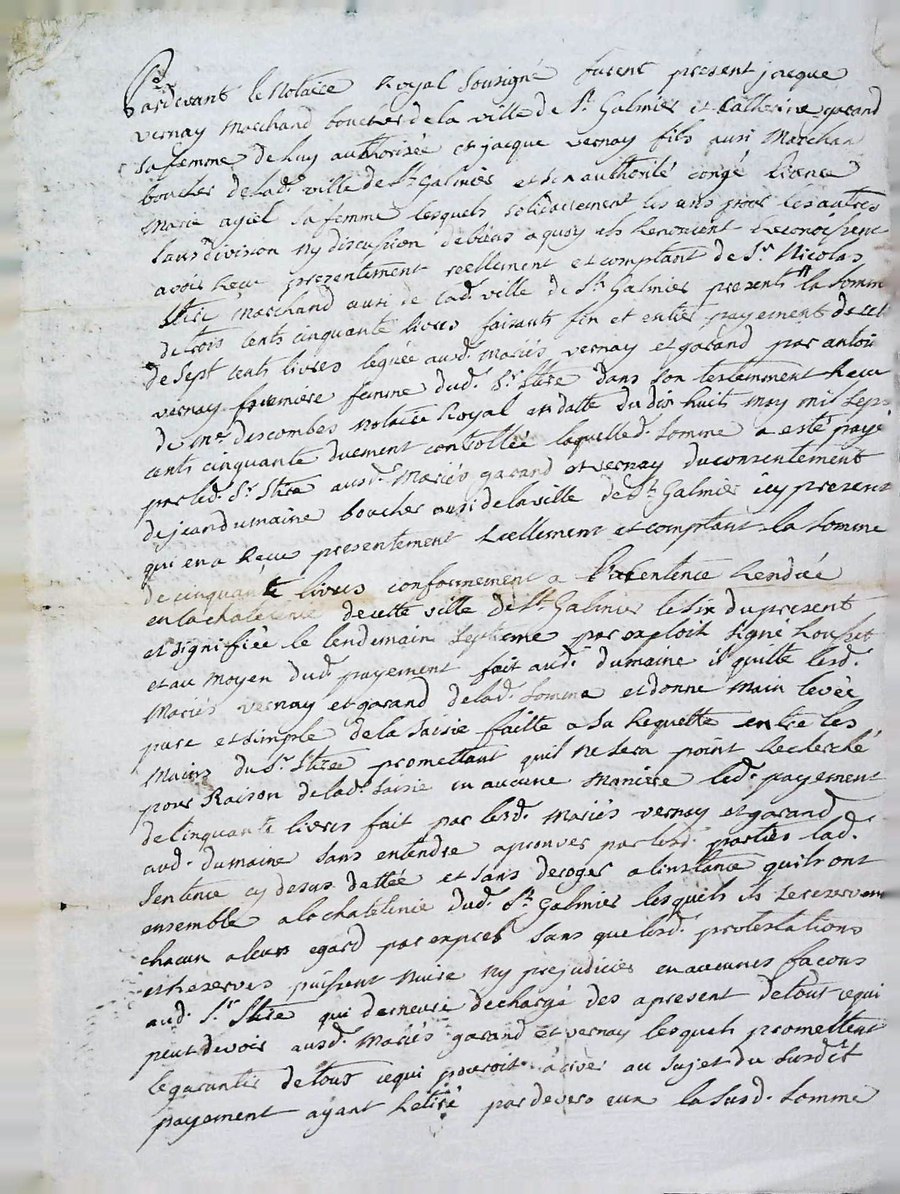 Pardevant le Notaire Royal Sousigné furent présent jacque
vernay Marchand boucher de la ville de St. Galmier et Catherine garand
sa femme de luy authorisée et jacque vernay fils ausi Marchan
boucher de lad. ville de St. Galmier et de son authorité congé licance
Marie ayiel sa femme lesquels solidairement les uns pour les autres
sans division ny discution de biens a quoy ils Renoncent Reconoisent
avoir Receu presentement reellement et comptant de Sr. Nicolas
Marchand ausi de lad. ville de St. Galmier present la somm
de trois cents cinquante livres faisants fin et entier payement de cel
de Sept cents livres leguée aud. Mariés vernay et garand par antoi
vernay premiere femme dud. Sr. dans son testemment Receu
de Me. descombes Notaire Royal en datte du dix huit may mil sept
cents cinquante duement controllée laquelle d. somme a esté payé
par led. Sr. ausd. Mariés garand et vernay du consentement
de jean dumaine boucher ausi de la ville de St. Galmier icy present
qui en a Receu presentement Reellement et comptant la somme
de cinquante livres conformement a la sentence Rendüe
en la chatelenie de cette ville de St. Galmier le six du present
et signifiée le lendemain septieme par exploit signé
et au moyen dud. payement fait aud. dumaine il quitte lesd.
Mariés vernay et garand de lad. somme et donne main levée
pure et simple de la saisie faitte a sa Requette entre les
mains du Sr. promettant quil ne sera point Recherché
pour Raison de lad. saisie en aucune maniere led. payement
de cinquante livres fait par lesd. Mariés vernay et garand
aud. dumaine sans entendre aprouver par lesd. parties lad.
Sentence cy desus dattée et sans deroger a linstance quils ont
ensemble a la chatelenie dud. St. Galmier lesquels ils se reservent
chacun a leurs egard par expres sans que lesd. protestations
et Reserves puissent nuire ny prejudicier en aucunes facons
aud. Sr. qui demeure dechargé des apresent de tout cequi
peut devoir ausd. Mariés garand et vernay lesquels promettent
le garantir de tous cequi pouroit ariver au sujet du surdit
payement ayant Retiré par devers eux la susd. somme